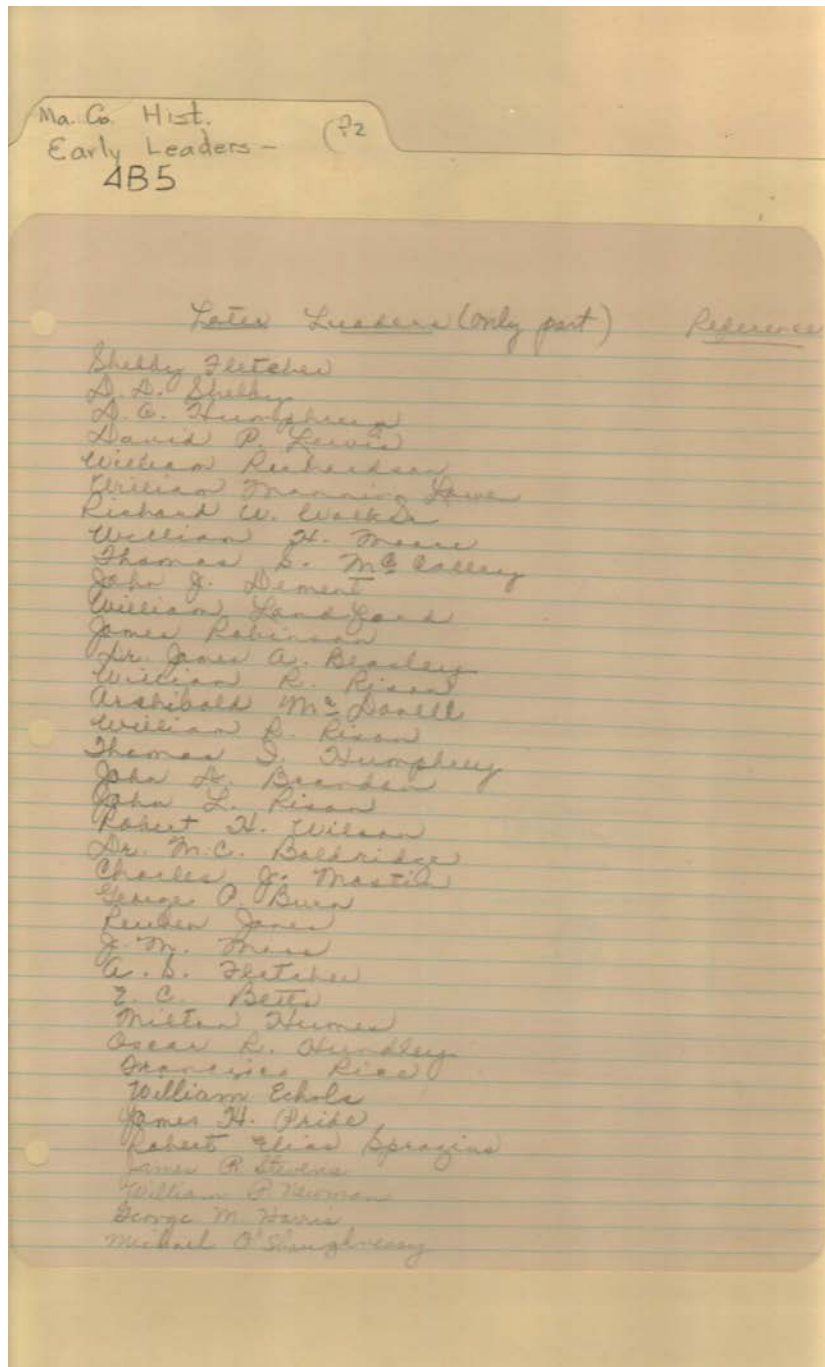 Ma. Co. Hist.
Early Leaders – (P2
4B5
Later Leaders (only part) Reference
Shelby Fletcher
D. D. Shelby
D. C. Humphreys
David P. Lewis
William Richardson
William Manning Lowe
Richard W. Walker
William H. Moore
Thomas S. McCalley
John J. Dement
William Landford
James Robinson
Dr. James A. Beasley
William R. Rison
Archibald McDonell
William R. Rison
Thomas I. Humphrey
John D. Brandon
John L. Rison
Robert H. Wilson
Dr. M.C. Baldridge
Charles J. Mastin
George P.
Reuben Jones
J. M.
A. S. Fletcher
E. C. Betts
Milton Humes
Oscar R. Hundley
Francisco Rice
William Echols
James H. Pride
Robert Elias Spragins
James R Stevens
William P. Newman
George M. Harris
Michael O'Shaughnessy